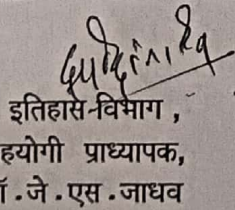 इतिहास-विभाग ,
हयोगी प्राध्यापक,
ॉ.जे.एस.जाधव